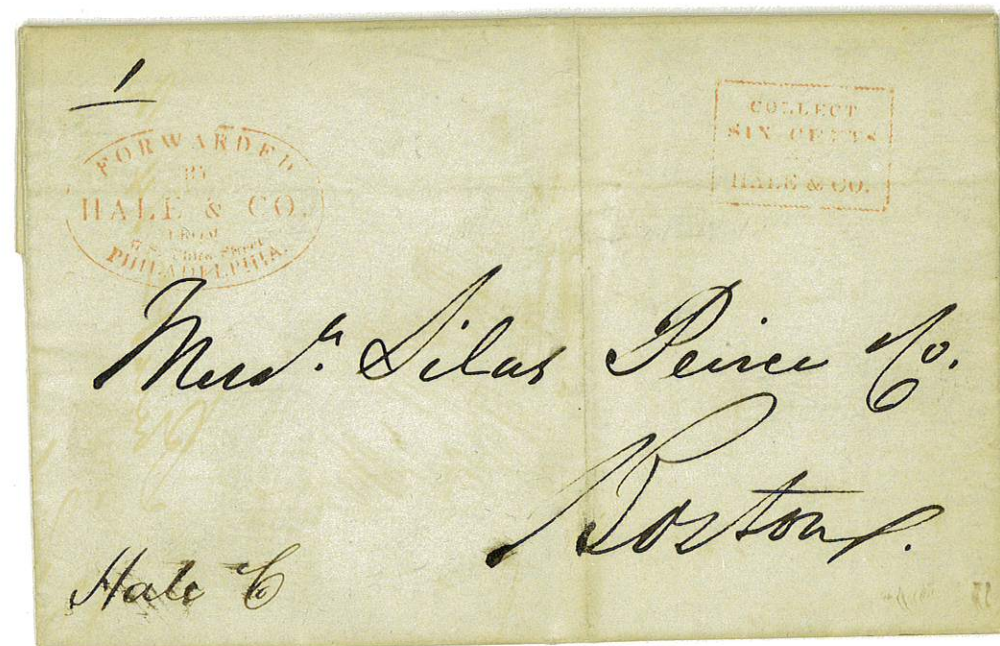 1
FORWARDED
BY
HALE & CO.
FROM
PHILADELPHIA.
COLLECT
SIX CENTS
HALE & CO.
Messrs. Silas Peirce Co.
Boston.
Hale & Co